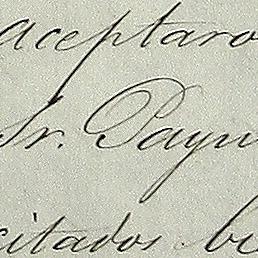 aceptaro
Sr. Payn
citados bi